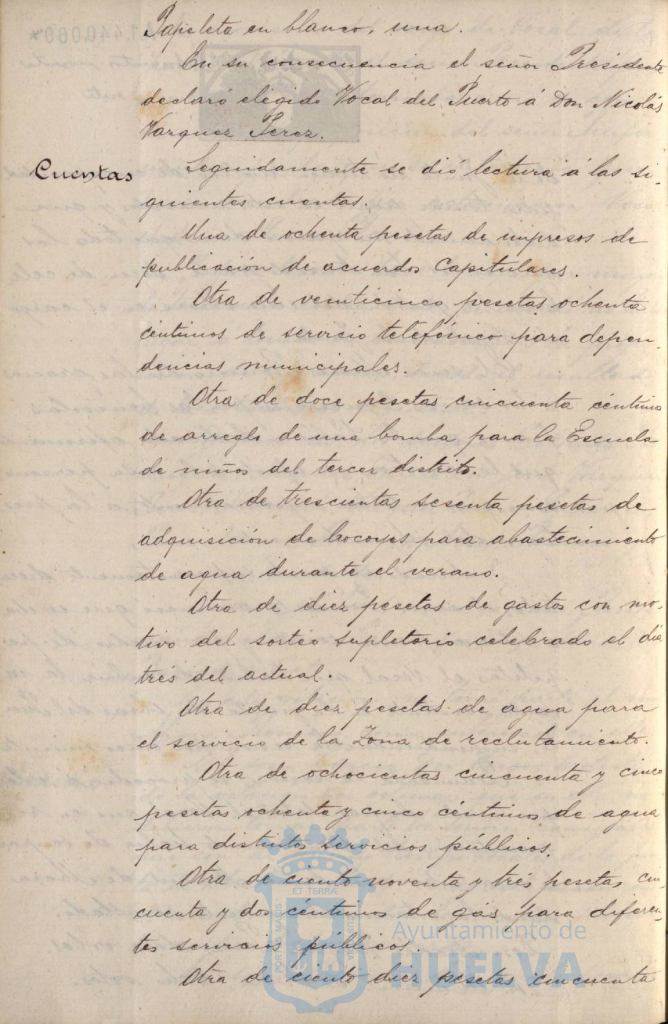 Papeleta en blanco, una.
En su consecuencia el señor Presidente
declaró elegido Vocal del Puerto á Don Nicolás
Vazquez Perez.
Cuentas
Seguidamente se dió lectura á las si-
guientes cuentas.
Una de ochenta pesetas de impresos de
publicación de acuerdos Capitulares.
Otra de veinticinco pesetas ochenta
céntimos de servicio telefónico para depen-
dencias municipales.
Otra de doce pesetas cincuenta céntimos
de arreglo de una bomba para la Escuela
de niños del tercer distrito.
Otra de trescientas sesenta pesetas de
adquisición de bocoyes para abastecimiento
de agua durante el verano.
Otra de diez pesetas de gastos con mo-
tivo del sorteo supletorio celebrado el día
trés del actual.
Otra de diez pesetas de agua para
el servicio de la Zona de reclutamiento.
Otra de ochocientas cincuenta y cinco
pesetas ochenta y cinco céntimos de agua
para distintos servicios públicos.
Otra de ciento noventa y trés pesetas cin-
cuenta y dos céntimos de gas para diferen-
tes servicios públicos.
Otra de ciento diez pesetas cincuenta
Ayuntamiento de
HUELVA